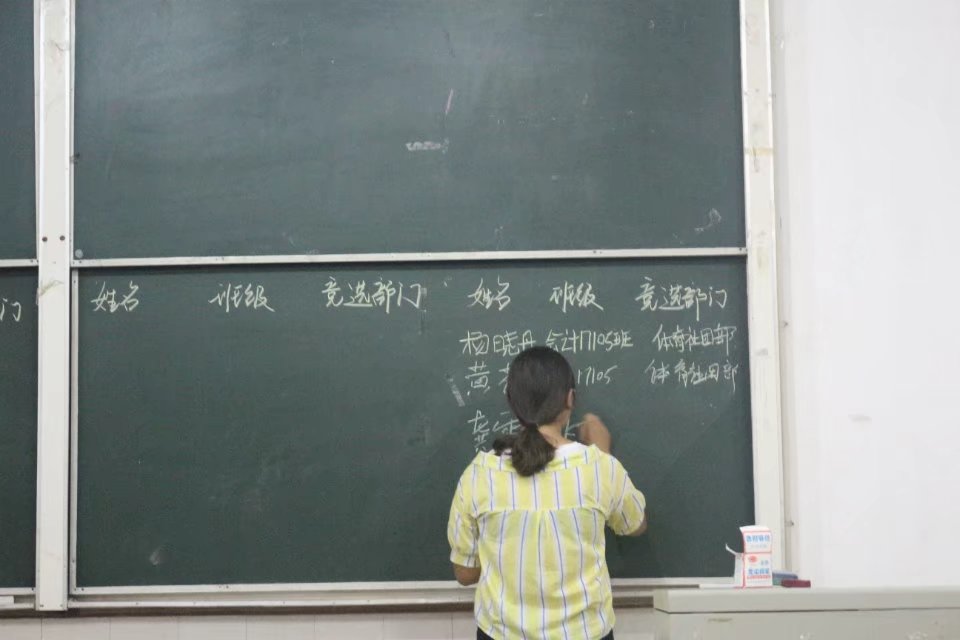 门 姓名 班级 竞选部门 姓名 班级 竞选部门
杨晓丹 会计17105班 体育社团部
黄 17105 体育社团部